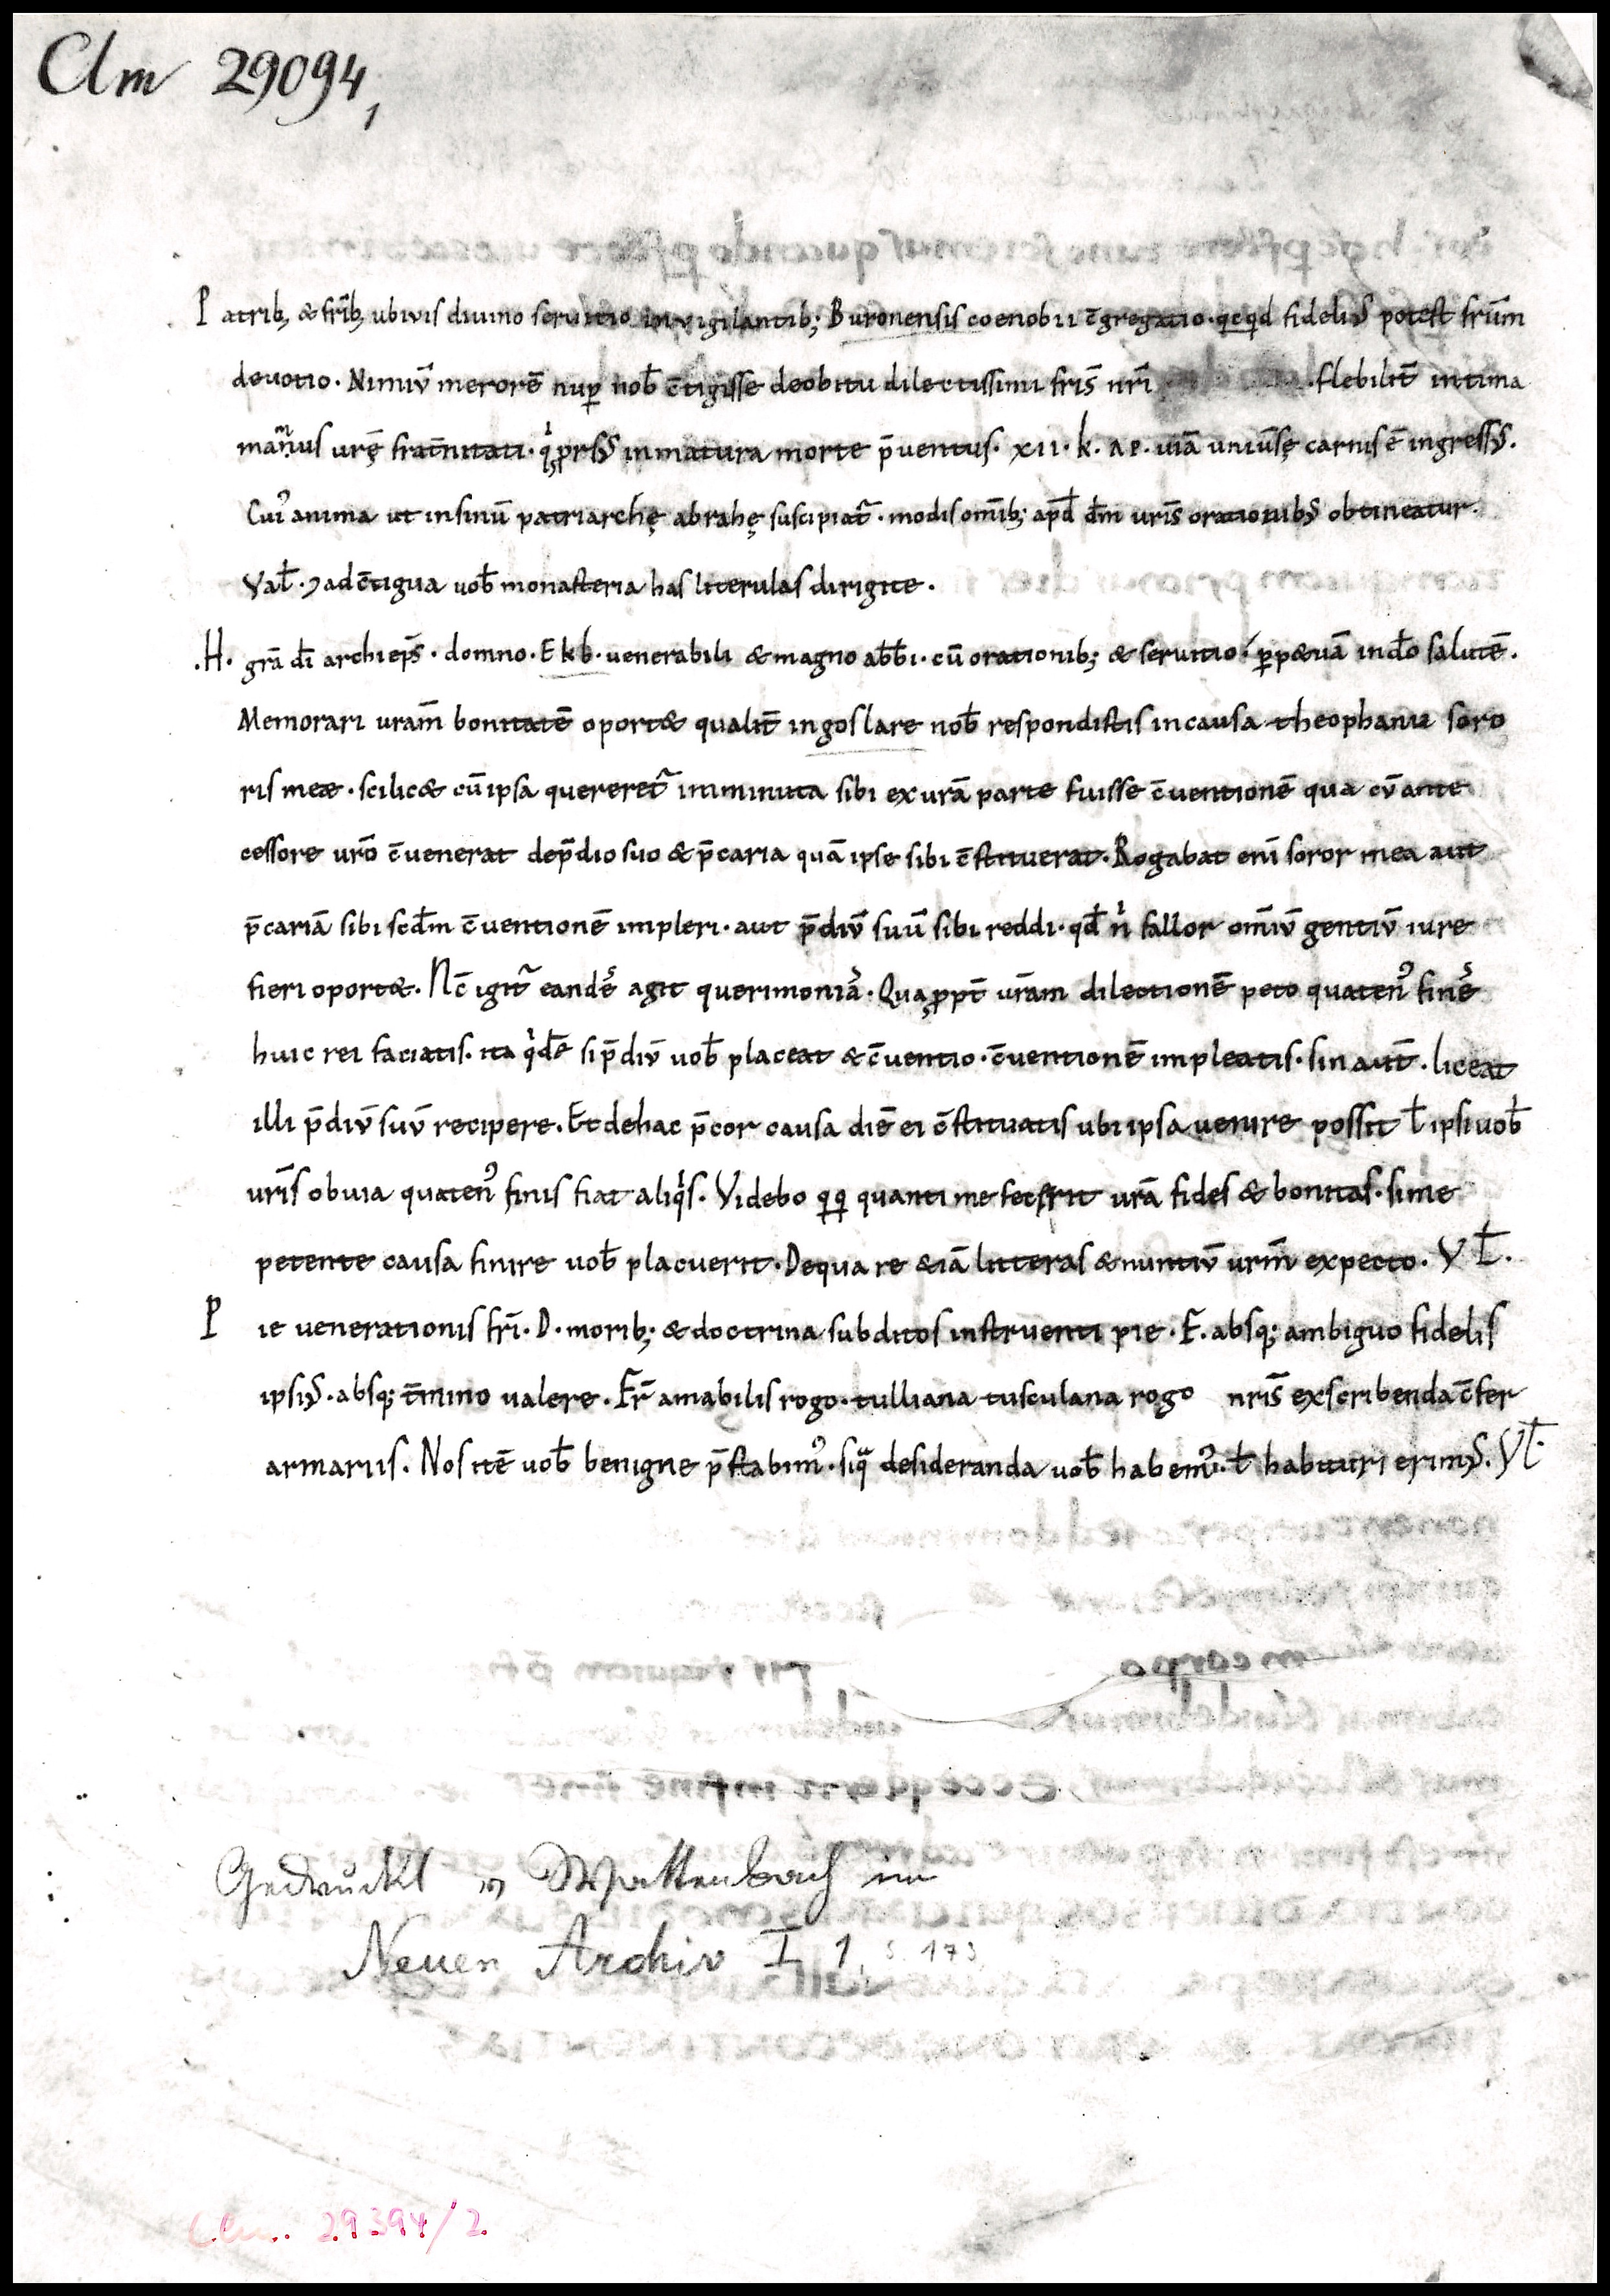 Clm 29094,
1
Patrib; & fr̄ib; ubivis divino servitio invigilantib; Buronensis coenobii c̄gregatio · qcqd fidelis potest fr̄um
devotio · Nimiū merorē nup̱ nob̄ c̄tigisse deobitu dilectissimi fr̄is nr̄i · flebilit̄ intima
mus vrę frat̄nitati · inmatura morte p̄ventus · xii · k · ap · uiā uniūsę carnis ē ingressꝰ.
Cuiꝰ anima ut insinū patriarchę abrahę suscipiat᷑ · modis om̄ib; apd̄ dm̄ vr̄is orationibꝰ obtineatur.
Val̄ · ⁊ ad c̄tigua vob̄ monasteria has literulas dirigite.
.H. grā dī archiep̄s · domno · Ekb · venerabili & magno abb̄i · cū orationib; & servitio / p̱p&uā indō salutē.
Memorari vram̄ bonitatē oport& qualit̄ ingoslare nob̄ respondistis incausa theophanie soro
ris meae · scilic& cū ipsa quereret᷑ inminuta sibi ex vrā parte fuisse c̄ventionē qua cū ante
cessore vrō c̄venerat dep̄dio suo & p̄caria quā ipse sibi c̄stituerat · Rogabat enī soror mea aut
p̄cariā sibi scd̄m c̄ventionē impleri · aut p̄diū suū sibi reddi · qd̄ nͥ fallor om̄iū gentiū iure
fieri oport& · Nc̄ igit᷑ eandē agit querimoniā · Quaꝓpt̄ vrām dilectionē peto quatenꝰ finē
huic rei faciatis · ita qͥdē si p̄diū vob̄ placeat & c̄ventio · c̄ventionē impleatis · sin aut̄ · liceat
illi p̄diū suū recipere · Et dehac p̄cor causa diē ei c̄stituatis ubi ipsa venire possit ł ipsi vob̄
vr̄is obvia quatenꝰ finis fiat aliqͥs · Videbo qq quanti me fecerit vrā fides & bonitas · si me
petente causa finire vob̄ placuerit · Dequa re &iā litteras & nuntiū vrm̄ expecto · VL̄.
Pie venerationis fr̄i · D · morib; & doctrina subditos instruenti pie · F. absq; ambiguo fidelis
ipsiꝰ · absq; t̄mino valere · Fr̄ amabilis rogo · tulliana tusculana rogo nr̄is exscribenda c̄fer
armariis · Nos itē vob̄ benigne p̄stabimꝰ · siqͣ desideranda vob̄ habemꝰ · ł habituri erimꝰ · VL̄.
Gedruckt v Wattenbach im
Neuen Archiv I 1, S. 173
Clm. 29394/2